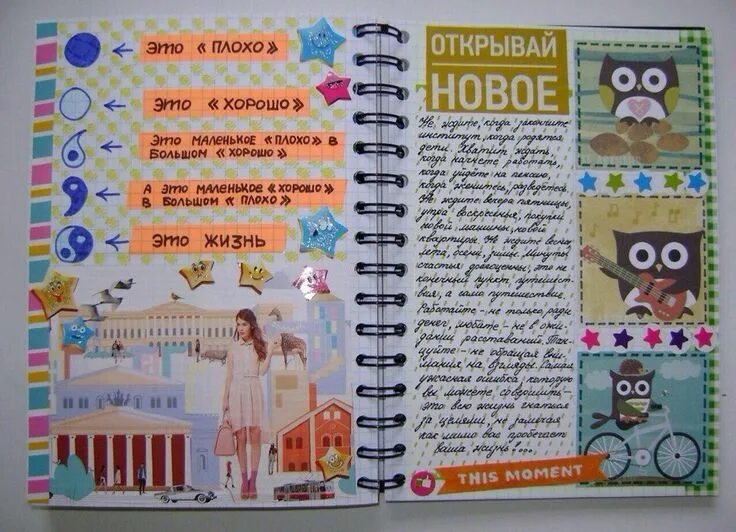 ЭТО «ПЛОХО»
ЭТО «ХОРОШО»
ЭТО МАЛЕНЬКОЕ «ПЛОХО» В
БОЛЬШОМ «ХОРОШО»
А ЭТО МАЛЕНЬКОЕ «ХОРОШО»
В БОЛЬШОМ «ПЛОХО»
ЭТО ЖИЗНЬ
ОТКРЫВАЙ
НОВОЕ
Не ждите, когда закончите
институт, когда родятся
дети. Хватит ждать,
когда начнете работать,
когда уйдёте на пенсию,
когда женитесь, разведетесь.
Не ждите вечера пятницы,
утра воскресенья, покупки
новой машины, новой
квартиры. Не ждите весны,
лета, осени, зимы. Минуты
счастья драгоценны, это не
конечный пункт путешест-
вия, а само путешествие.
Работайте - не только ради
денег, любите - не в ожи-
дании расставаний. Тан-
цуйте - не обращая вни-
мания на взгляды. Самая
ужасная ошибка, которую
вы можете совершить -
это всю жизнь гнаться
за целями, не замечая
как мимо вас пробегает
ваша жизнь...
THIS MOMENT